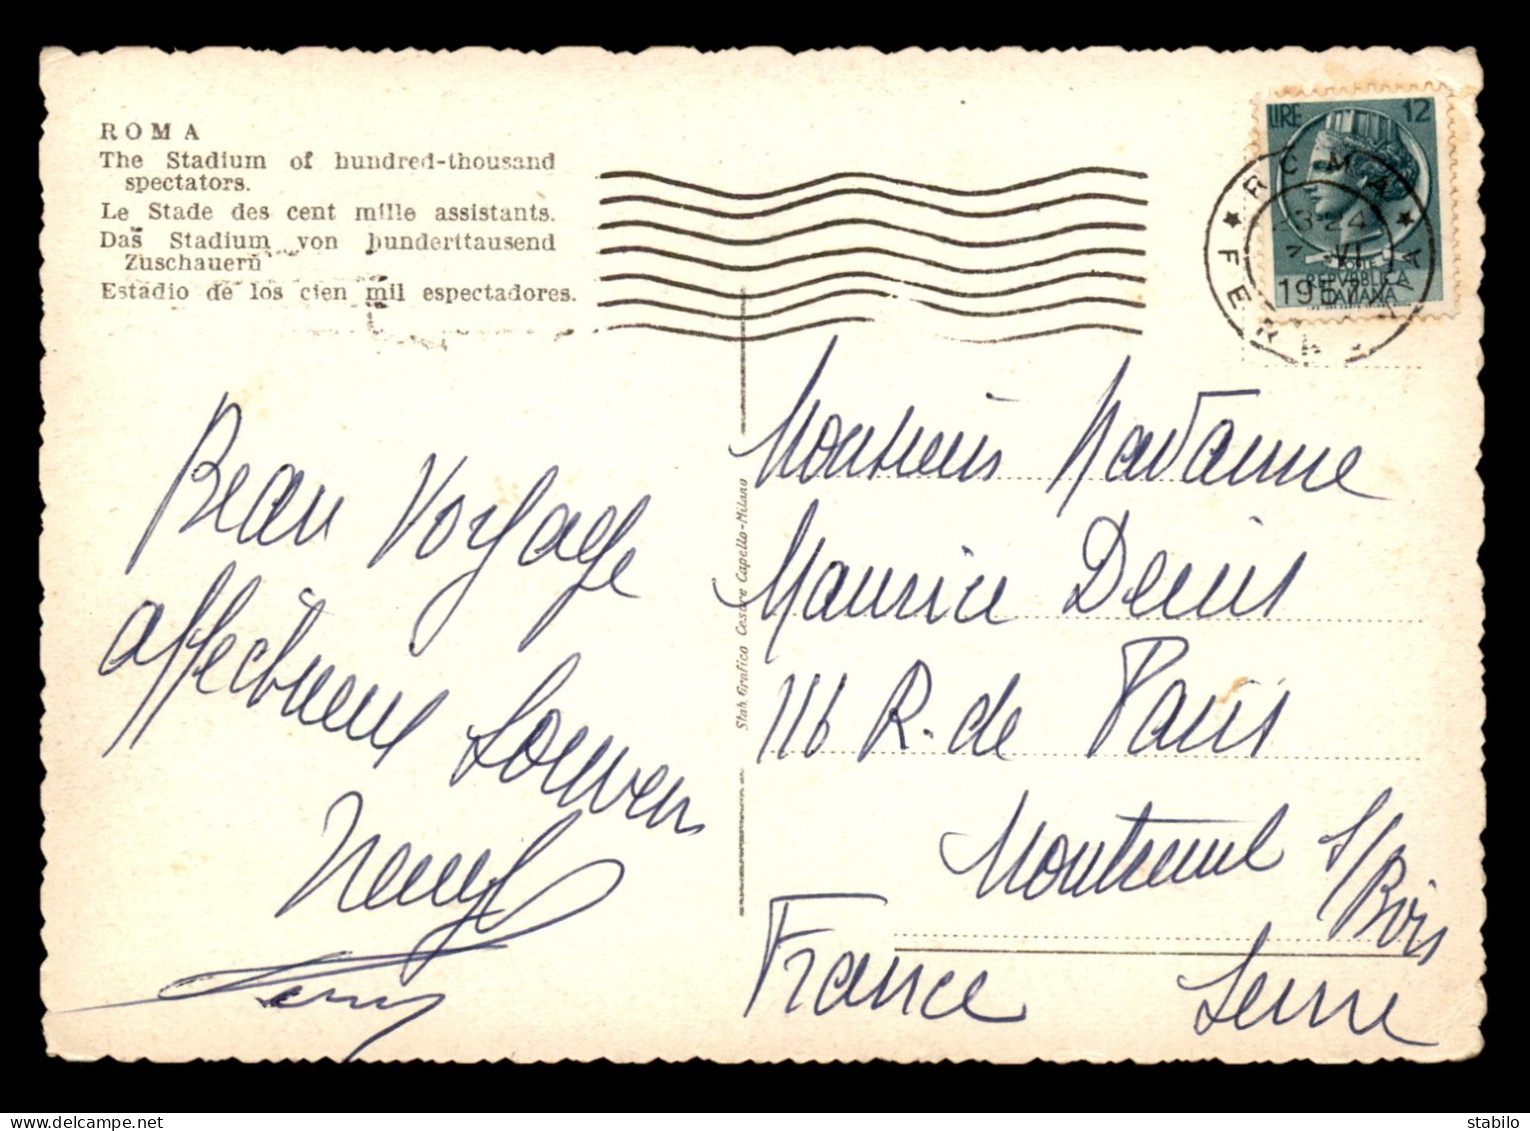 ROMA
The Stadium of hundred-thousand
spectators.
Le Stade des cent mille assistants.
Das Stadium von hunderttausend
Zuschauern
Estadio de los cien mil espectadores.
LIRE 12
ROMA
23-24
7 VI
1957
FERROVIA
REPVBBLICA
ITALIANA
Stab. Grafico Cesare Capello-Milano
Beau Voyage
affectueux Souven
Monsieur Madame
Maurice Denis
116 R. de Paris
Montreuil S/
Bois
France Seine
delcampe.net
stilobolis